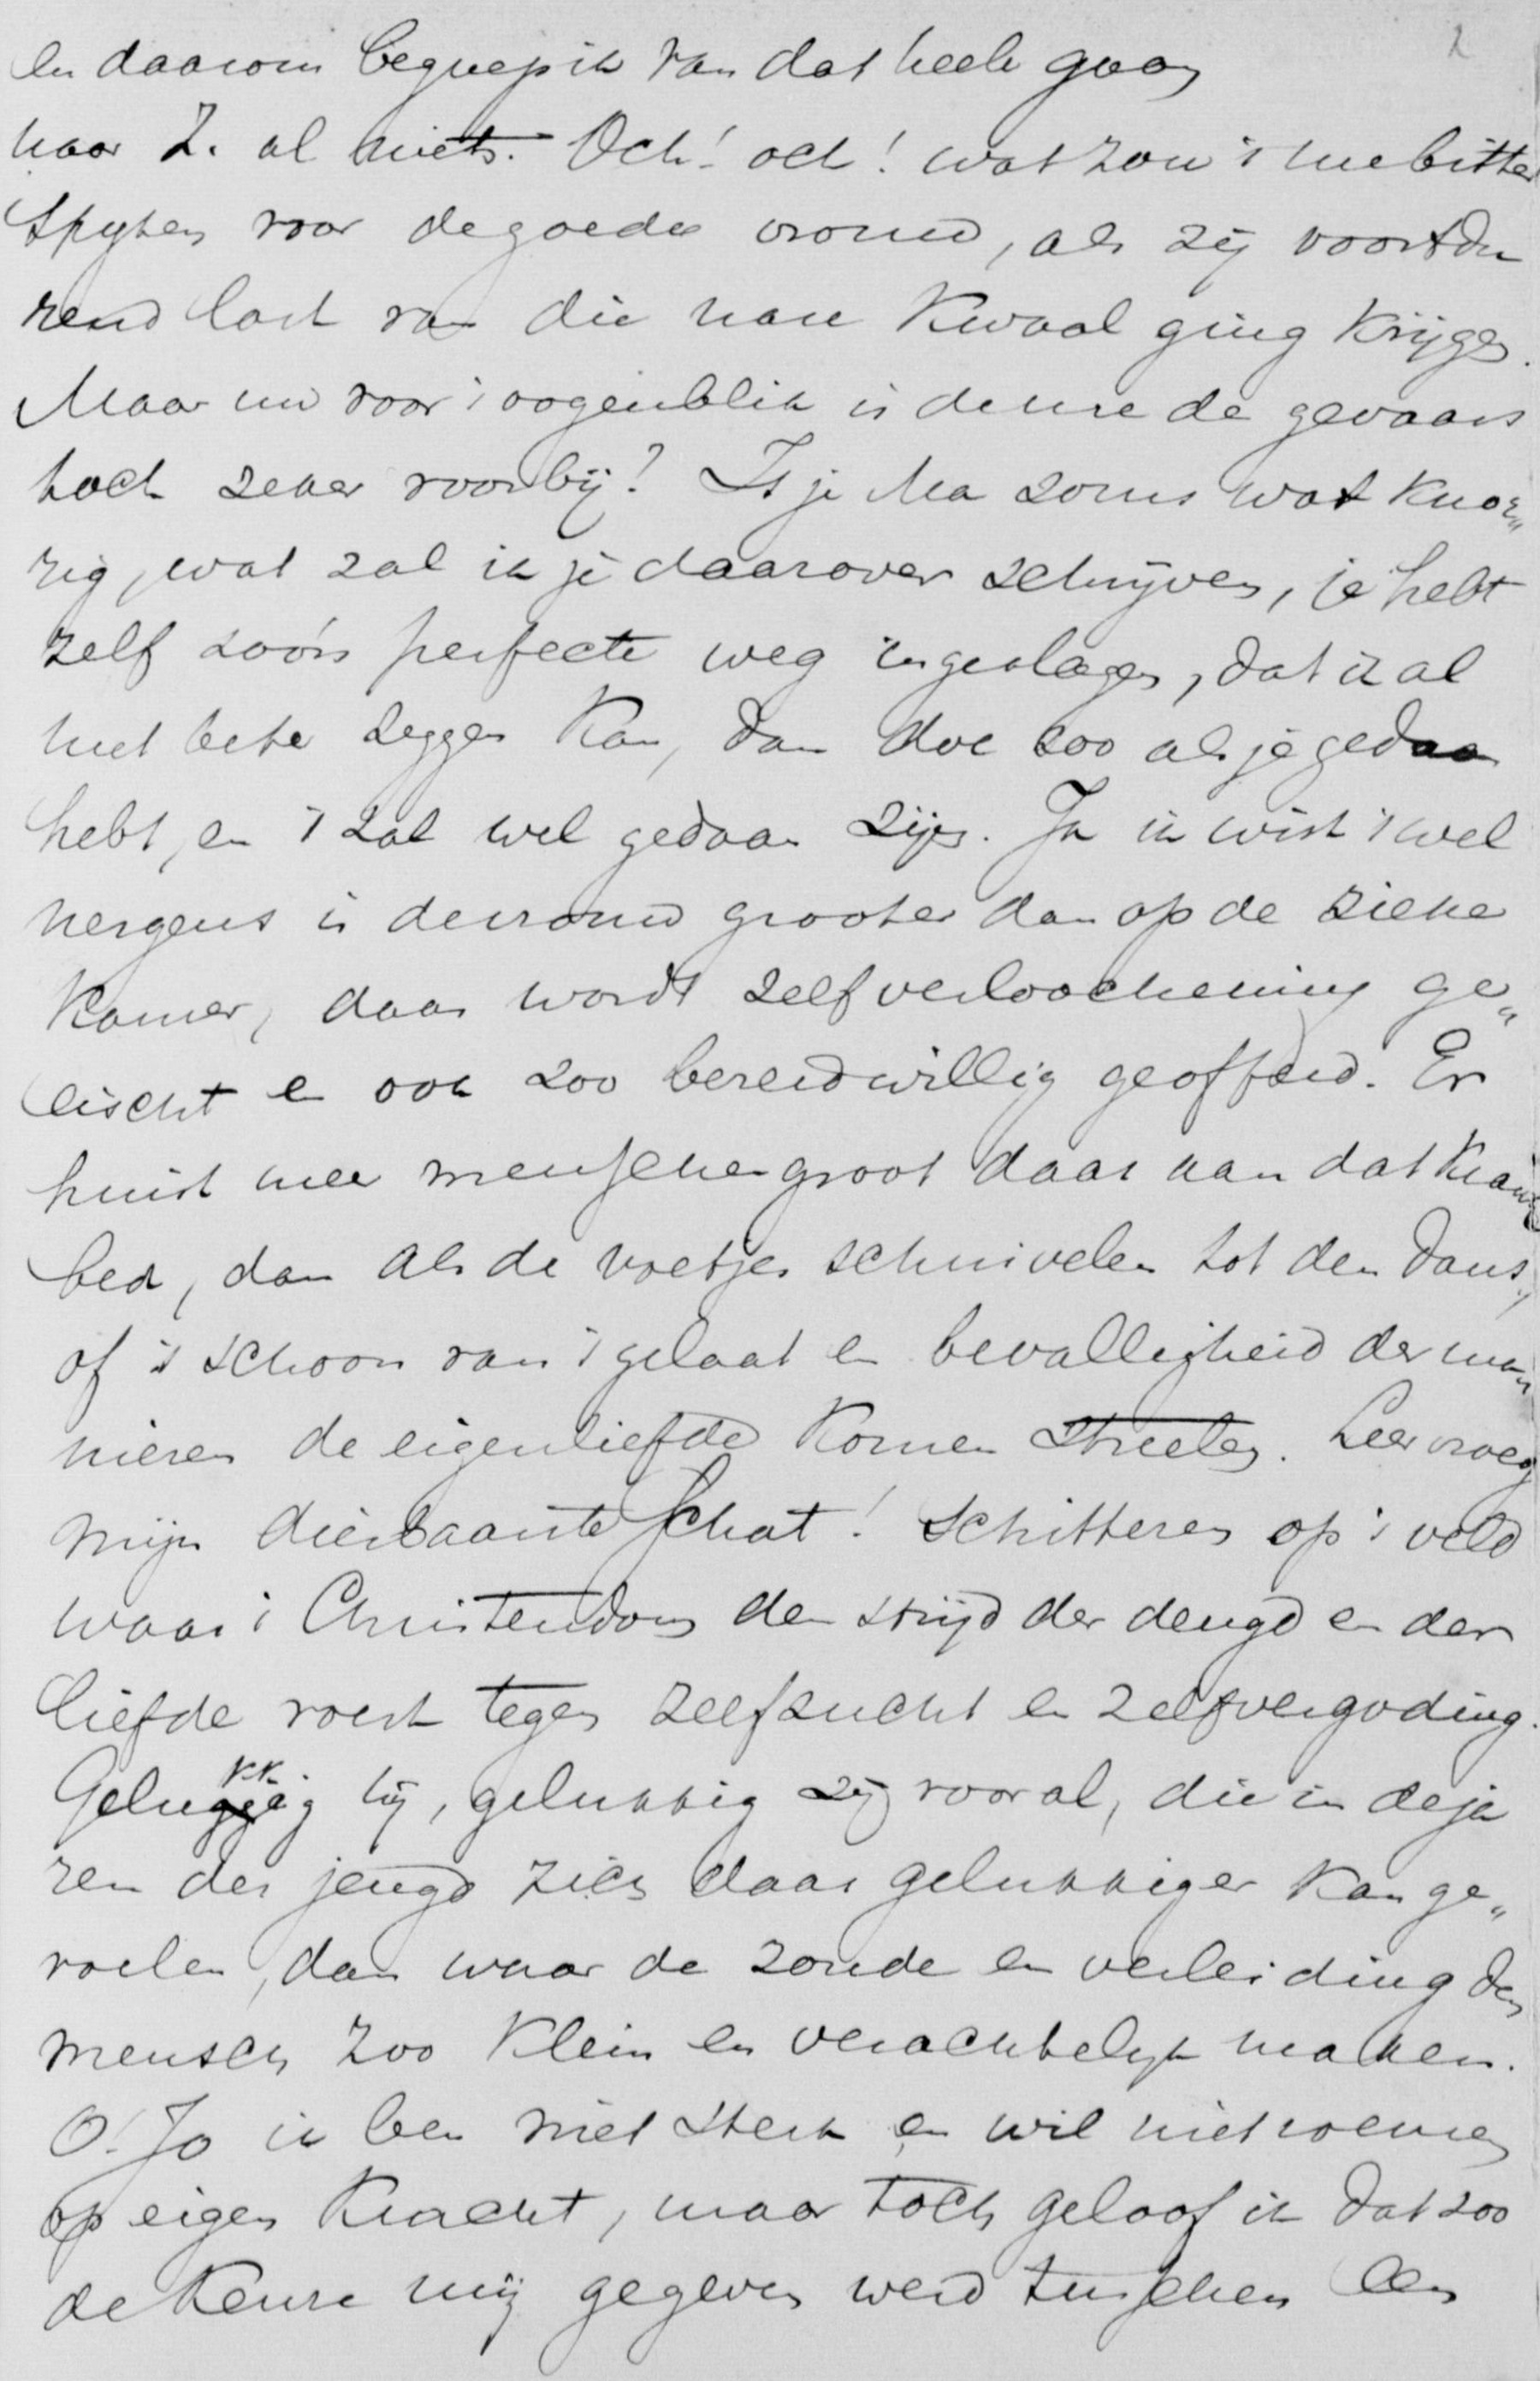 2
En daarom begreep ik van dat heele gaan
naar Z. al niets. Och! och! wat zou 't me bitter
spijten voor de goede vrouw, als zij voortdu
rend last van die nare kwaal ging krijgen.
Maar nu voor 't oogenblik is de gevaar
toch zeker voorbij? Is je Ma soms wat knor„
rig, wat zal ik je daarover schrijven, je hebt
zelf zoo'n perfecte weg ingeslagen, dat ik al
niet beter zeggen kan, dan doe zoo als je gedaan
hebt, en 't zal wel gedaan zijn. Ja ik wist 't wel
nergens is de vrouw grooter dan op de zieken
kamer, daar wordt zelfverloochening ge„
eischt en ook zoo bereidwillig geofferd. Er
huist meer menschengroot daar aan dat krank
bed, dan als de voetjes schuivelen tot den dans,
of 't schoon van 't gelaat en bevalligheid der ma„
nieren de eigenliefde komen streelen. Leer vroeg
mijn dierbaarste schat! schitteren op 't veld
waar 't Christendom den strijd der deugd en der
liefde voert tegen zelfzucht en zelfvergoding.
Gelukkig hij, gelukkig zij vooral, die in de ja
ren der jeugd zich daar gelukkiger kan ge„
voelen, dan waar de zonde en verleiding den
mensch zoo klein en verachtelijk maken.
O! Jo ik ben niet sterk en wil niet roemen
op eigen kracht, maar toch geloof ik dat zoo
de keuze mij gegeven werd tusschen een